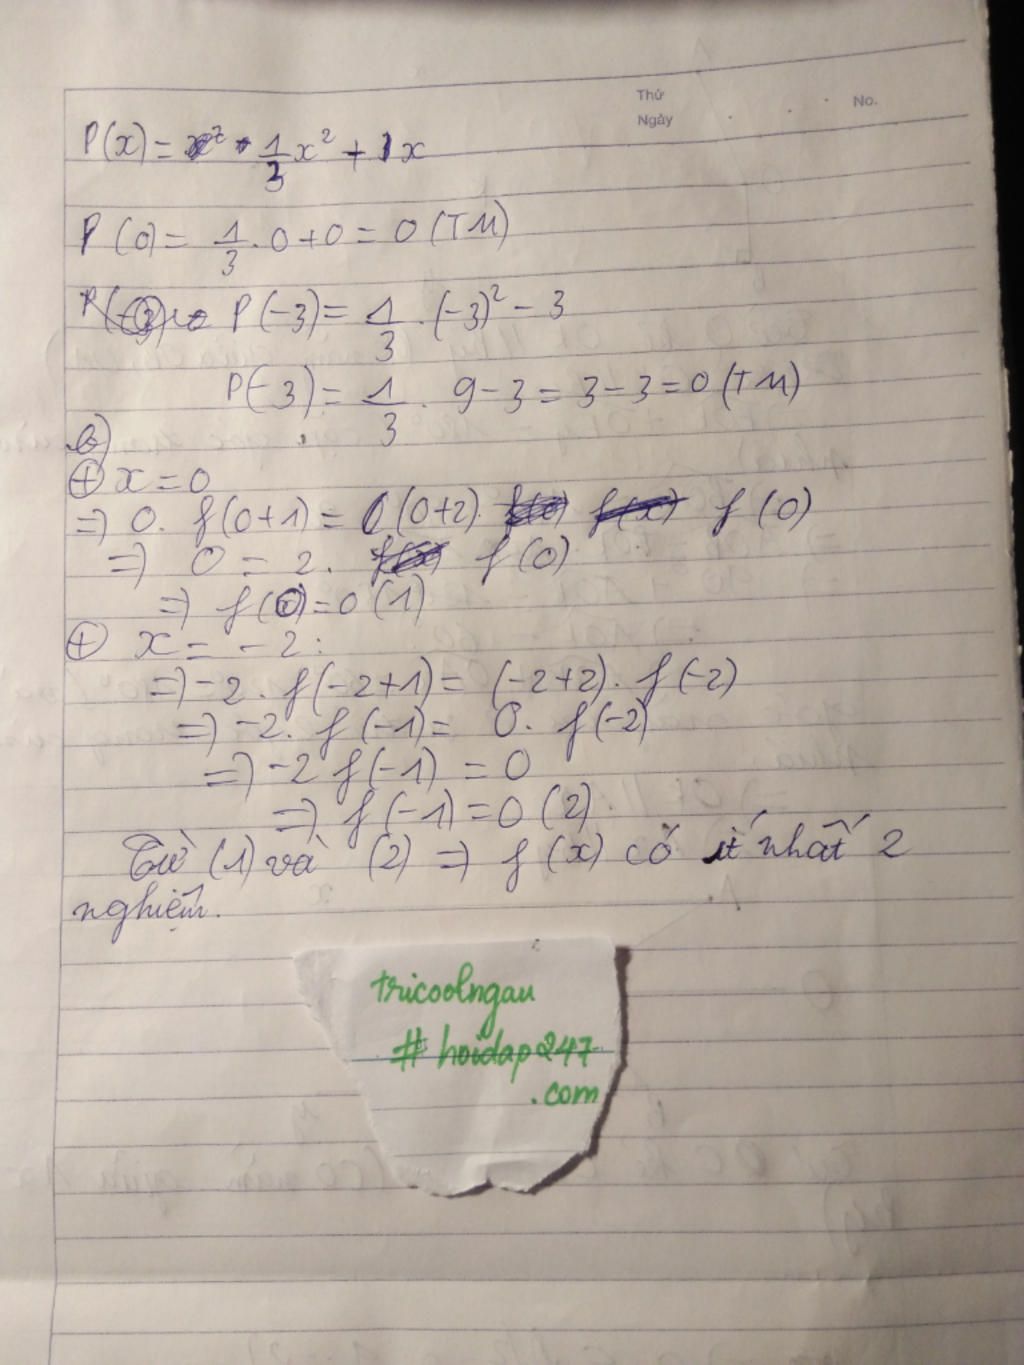 Thứ
Ngày
No.
P(x) = 1/3 x² + 1x
P(0) = 1/3 . 0 + 0 = 0 (TM)
P(-3) = 1/3 . (-3)² - 3
P(-3) = 1/3 . 9 - 3 = 3 - 3 = 0 (TM)
b)
⊕ x = 0
=> 0. f(0+1) = (0+2). f(0)
=> 0 = 2. f(0)
=> f(0) = 0 (1)
⊕ x = -2:
=> -2. f(-2+1) = (-2+2). f(-2)
=> -2. f(-1) = 0. f(-2)
=> -2 f(-1) = 0
=> f(-1) = 0 (2).
Từ (1) và (2) => f(x) có ít nhất 2
nghiệm.
tricoolngau
# hoidap247
.com